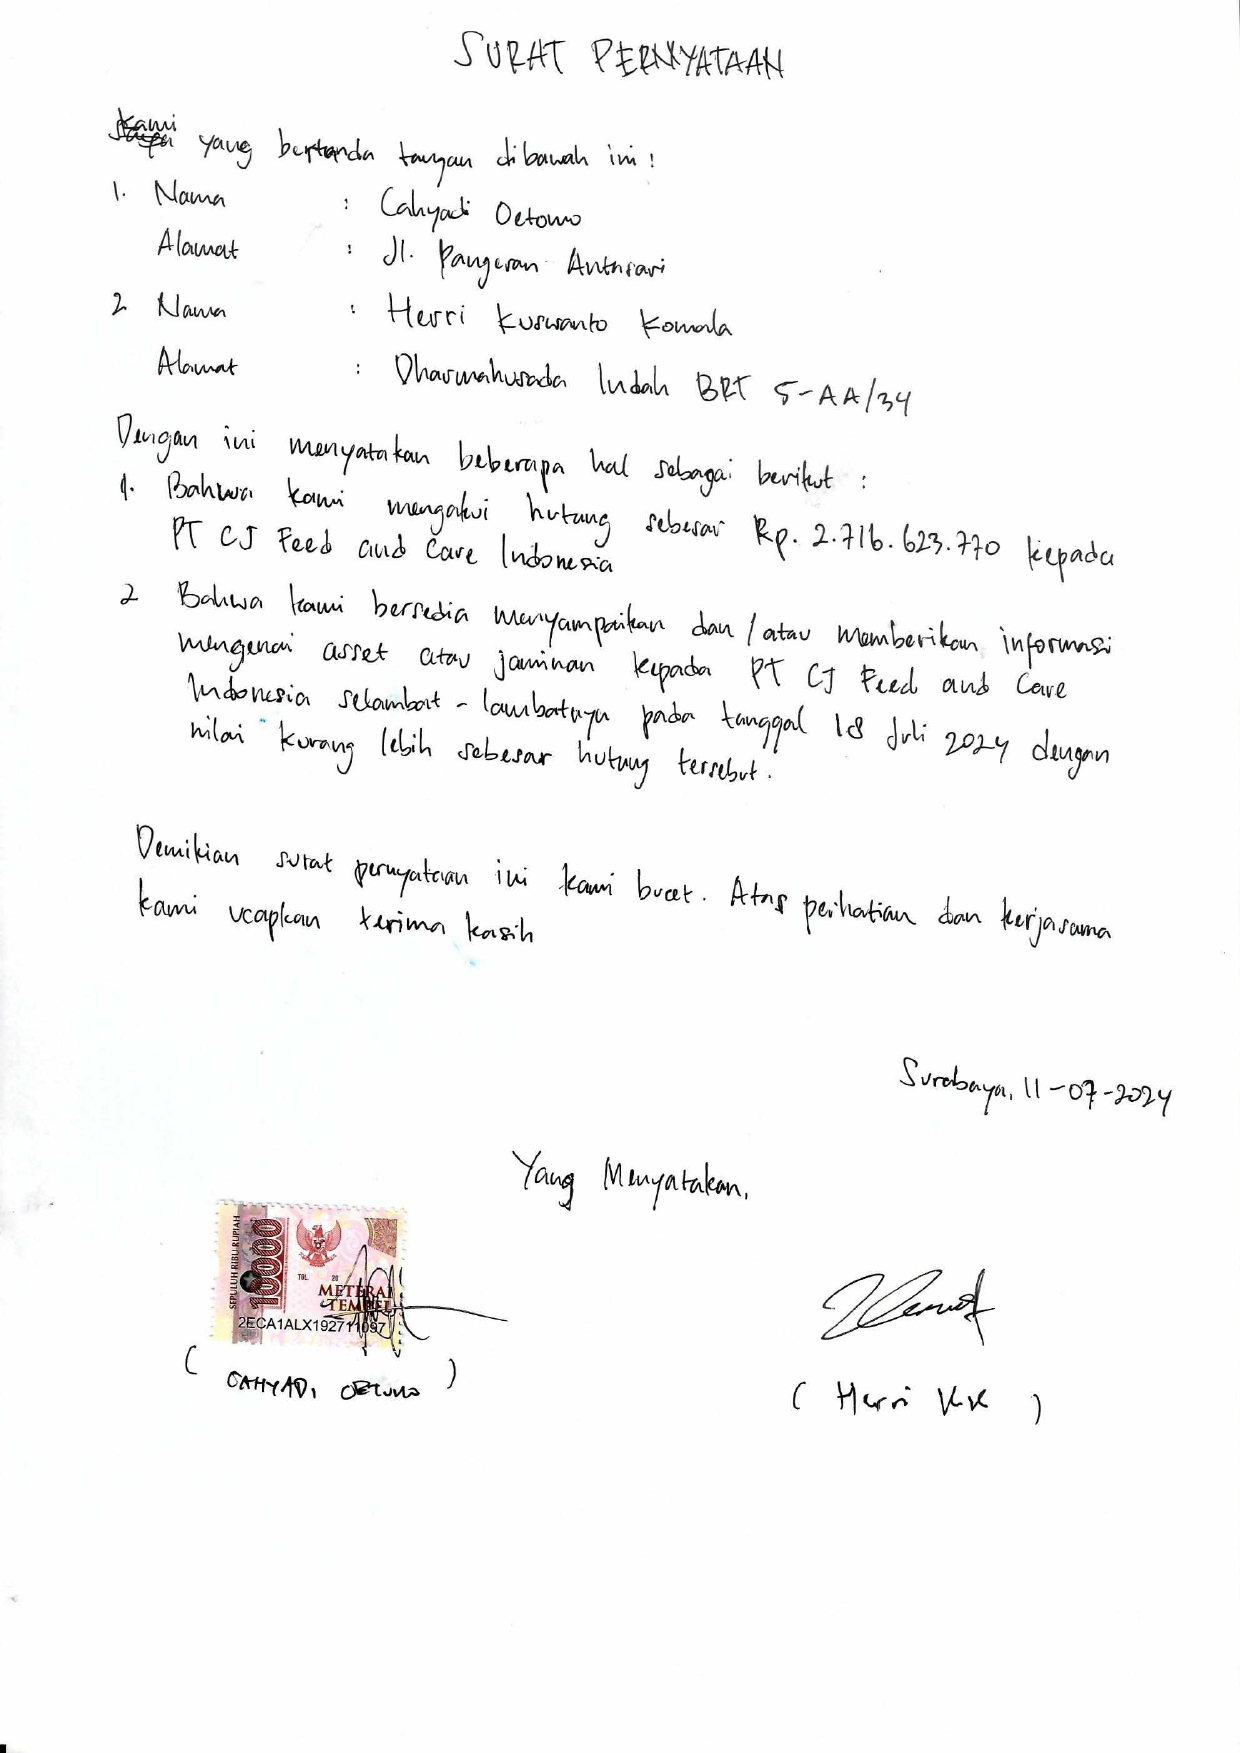 SURAT PERNYATAAN
Kami
yang bertanda tangan dibawah ini :
1. Nama : Cahyadi Oetomo
Alamat : Jl. Pangeran Antasari
2 Nama : Herri Kuswanto Komala
Alamat : Dharmahusada Indah BRT 5-AA/34
Dengan ini menyatakan beberapa hal sebagai berikut :
1. Bahwa kami mengakui hutang sebesar Rp. 2.716.623.770 kepada
PT CJ Feed and Care Indonesia
2 Bahwa kami bersedia menyampaikan dan/atau memberikan informasi
mengenai asset atau jaminan kepada PT CJ Feed and Care
Indonesia selambat-lambatnya pada tanggal 18 Juli 2024 dengan
nilai kurang lebih sebesar hutang tersebut.
Demikian surat pernyataan ini kami buat. Atas perhatian dan kerjasama
kami ucapkan terima kasih
Surabaya, 11-07-2024
Yang Menyatakan,
SEPULUH RIBU RUPIAH
10000
TGL. 20
METERAI
TEMPEL
2ECA1ALX192711097
( CAHYADI OETOMO )
( Herri KK )